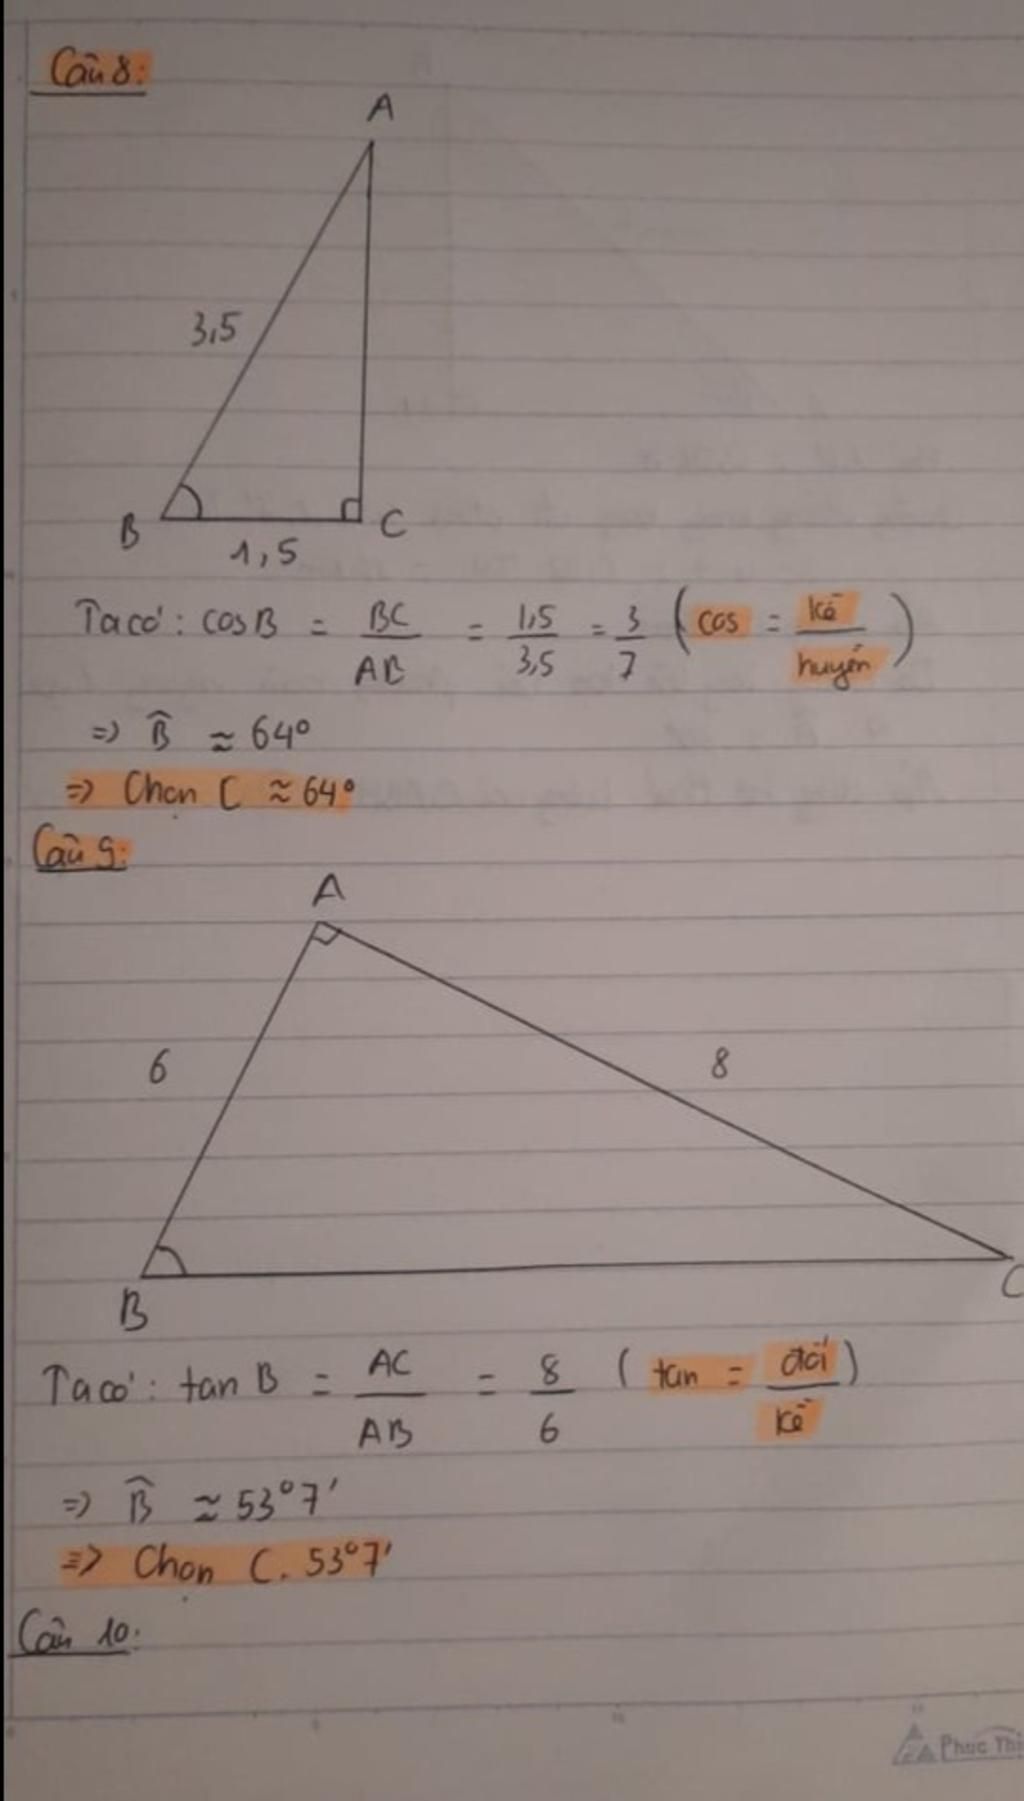 Câu 8:
A
3,5
B
C
1,5
Ta có: cosB = BC/AB = 1,5/3,5 = 3/7 (cos = kề/huyền)
=> B̂ ≈ 64°
=> Chọn C ≈ 64°
Câu 9:
A
6
8
B
C
Ta có: tan B = AC/AB = 8/6 (tan = đối/kề)
=> B̂ ≈ 53°7'
=> Chọn C. 53°7'
Câu 10:
Phuc Thi